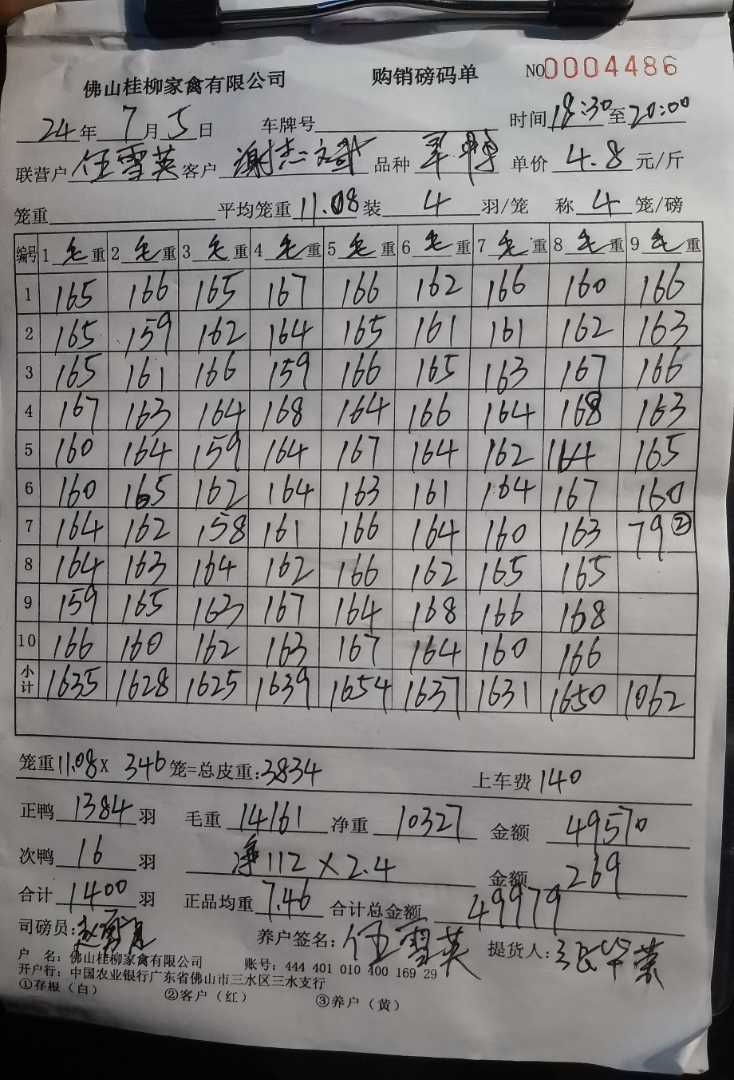 佛山桂柳家禽有限公司 购销磅码单 NO0004486
24年7月5日 车牌号 时间18:30至20:00
联营户 任雪英 客户 谢志斌 品种 单价 4.8 元/斤
笼重 平均笼重 11.08 装 4 羽/笼 称 4 笼/磅
编号 1毛重 2毛重 3毛重 4毛重 5毛重 6毛重 7毛重 8毛重 9毛重
1 165 166 165 167 166 162 166 160 166
2 165 159 162 164 165 161 161 162 163
3 165 161 166 159 166 165 163 167 166
4 167 163 164 168 164 166 164 168 163
5 160 164 159 164 167 164 162 164 165
6 160 165 162 164 163 161 164 167 160
7 164 162 158 161 166 164 160 163 79②
8 164 163 164 162 166 162 165 165
9 159 165 163 167 164 168 166 168
10 166 160 162 163 167 164 160 166
小计 1635 1628 1625 1639 1654 1637 1631 1650 1062
笼重11.08× 346 笼=总皮重:3834 上车费 140
正鸭 1384 羽 毛重 14161 净重 10327 金额 49570
次鸭 16 羽 净112×2.4 金额 269
合计 1400 羽 正品均重 7.46 合计总金额 49979
司磅员: 养户签名: 任雪英 提货人:
户 名: 佛山桂柳家禽有限公司 账号: 444 401 010 400 169 29
开户行: 中国农业银行广东省佛山市三水区三水支行
①存根(白) ②客户(红) ③养户(黄)